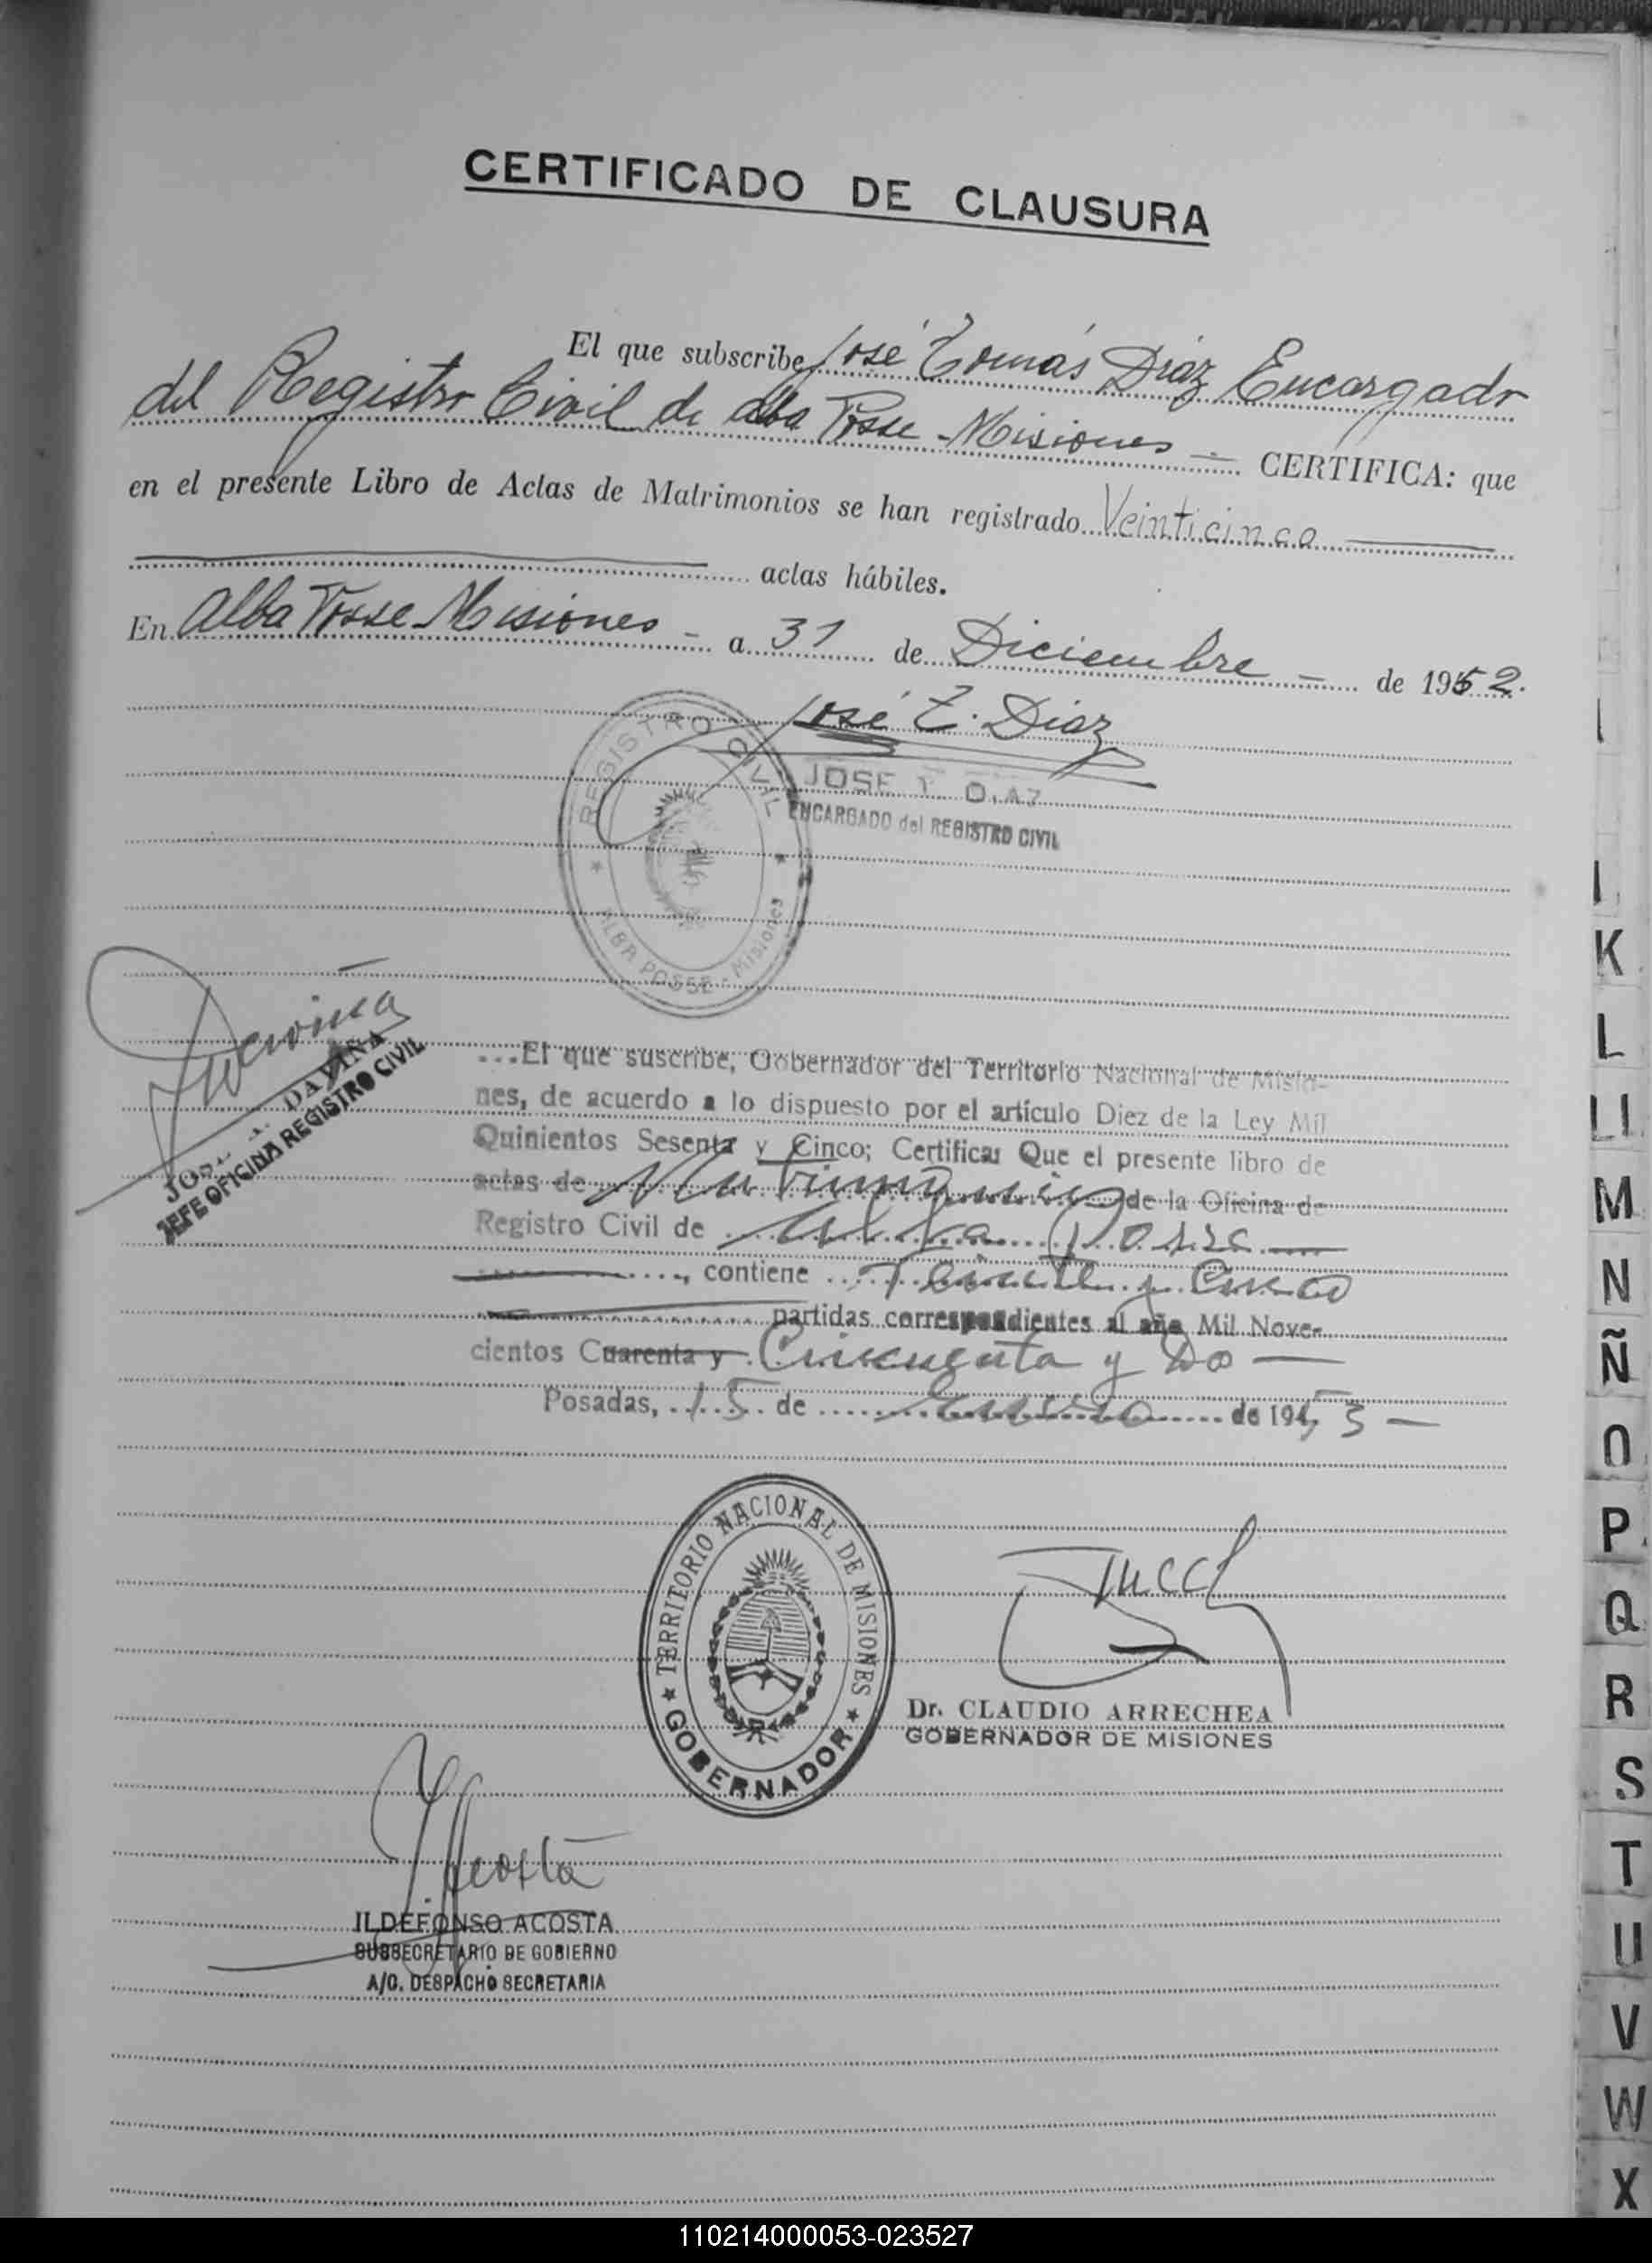 CERTIFICADO DE CLAUSURA
El que subscribe José Tomás Diaz Encargado
del Registro Civil de Alba Posse - Misiones — CERTIFICA: que
en el presente Libro de Actas de Matrimonios se han registrado Veinticinco
actas hábiles.
En Alba Posse Misiones - a 31 de Diciembre - de 1952.
José T. Diaz
JOSE T. DIAZ
ENCARGADO del REGISTRO CIVIL
REGISTRO CIVIL
ALBA POSSE - Misiones
DAVIÑA
JEFE OFICINA REGISTRO CIVIL
El que suscribe, Gobernador del Territorio Nacional de Misio-
nes, de acuerdo a lo dispuesto por el artículo Diez de la Ley Mil
Quinientos Sesenta y Cinco; Certifica: Que el presente libro de
actas de Matrimonio de la Oficina de
Registro Civil de Alba Posse —
, contiene Veinte y Cinco
partidas correspondientes al año Mil Nove-
cientos Cuarenta y Cincuenta y Do —
Posadas, 15 de Enero de 1953 —
TERRITORIO NACIONAL DE MISIONES
GOBERNADOR
Dr. CLAUDIO ARRECHEA
GOBERNADOR DE MISIONES
Acosta
ILDEFONSO ACOSTA
SUBSECRETARIO DE GOBIERNO
A/C. DESPACHO SECRETARIA
I
K
L
Ll
M
N
Ñ
O
P
Q
R
S
T
U
V
W
X
110214000053-023527